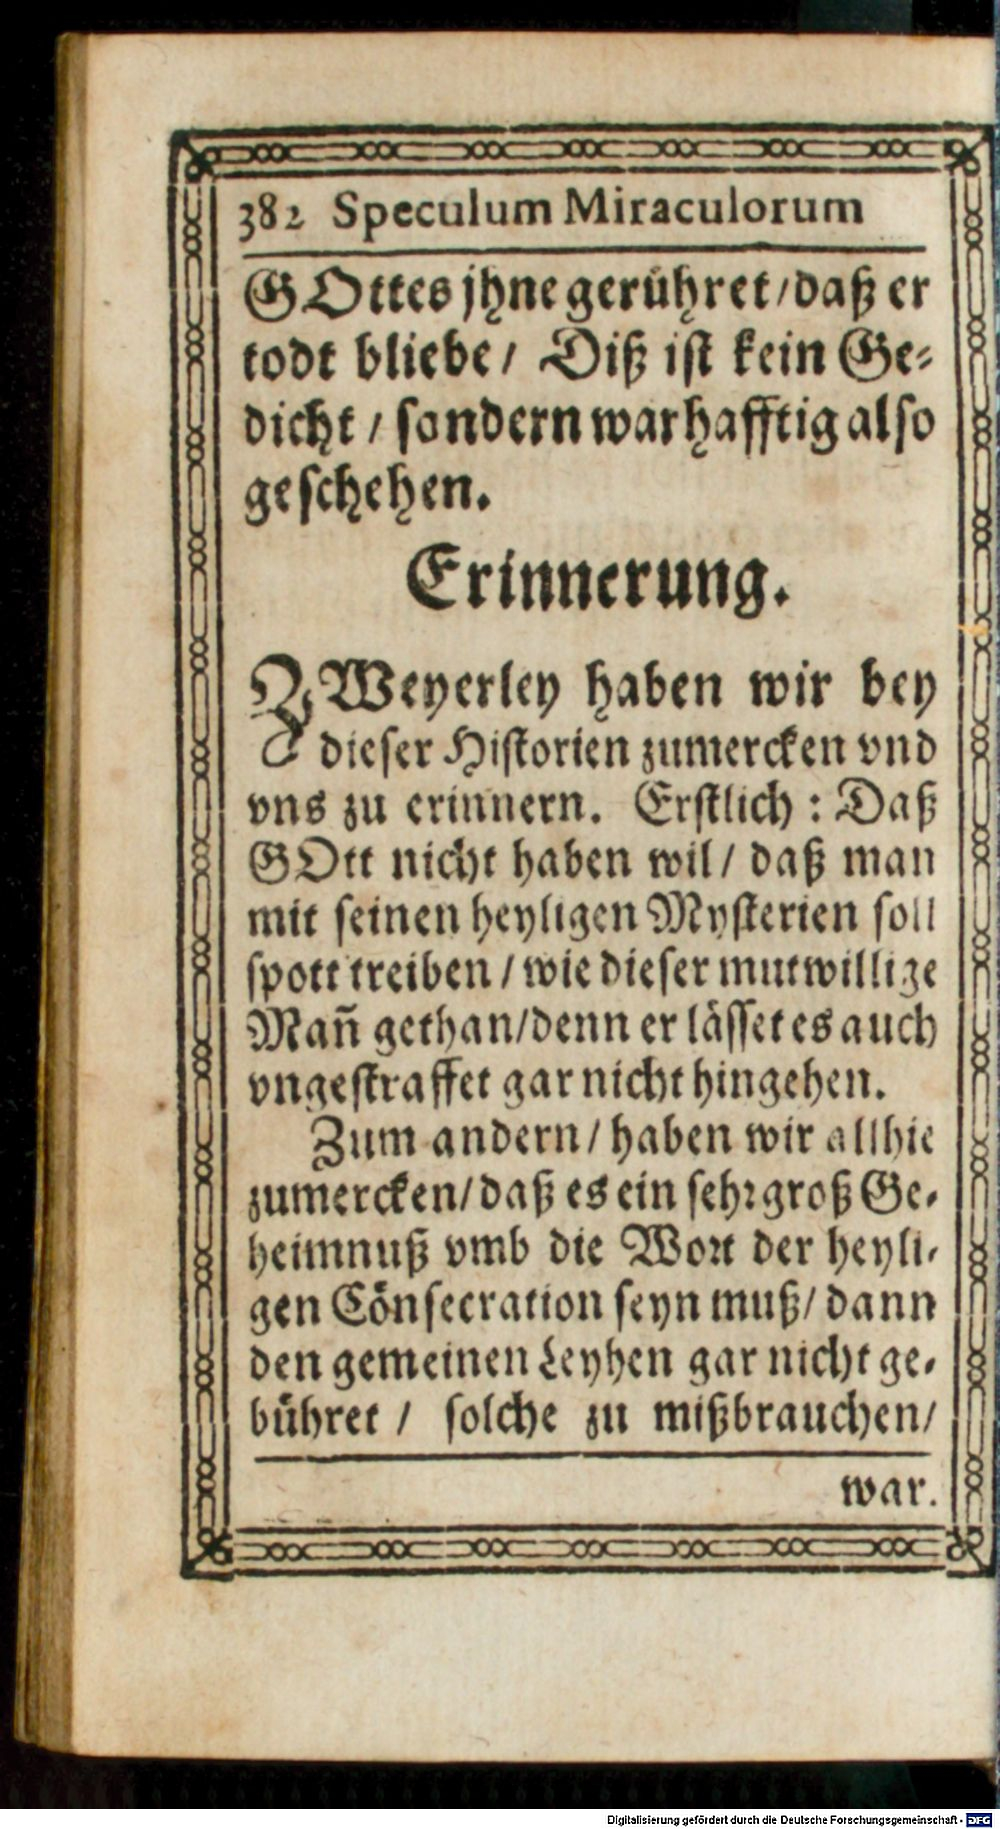 382 Speculum Miraculorum
GOttes jhne gerühret / daß er
todt bliebe / Diß ist kein Ge-
dicht / sondern warhafftig also
geschehen.
Erinnerung.
ZWeyerley haben wir bey
dieser Historien zumercken vnd
vns zu erinnern. Erstlich : Daß
GOtt nicht haben wil / daß man
mit seinen heyligen Mysterien soll
spott treiben / wie dieser mutwillige
Mañ gethan / denn er lässet es auch
vngestraffet gar nicht hingehen.
Zum andern / haben wir allhie
zumercken / daß es ein sehr groß Ge-
heimnuß vmb die Wort der heyli-
gen Cönsecration seyn muß / dann
den gemeinen Leyhen gar nicht ge-
bühret / solche zu mißbrauchen /
war.
Digitalisierung gefördert durch die Deutsche Forschungsgemeinschaft - DFG